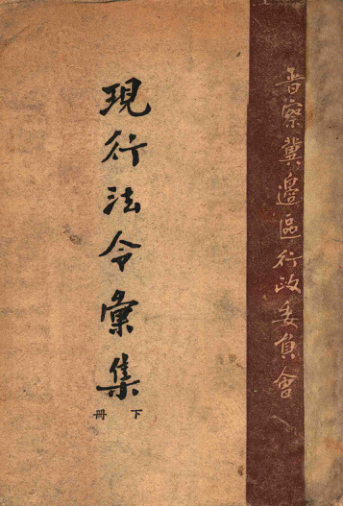 晉察冀邊區行政委員會
現行法令彙集
下冊